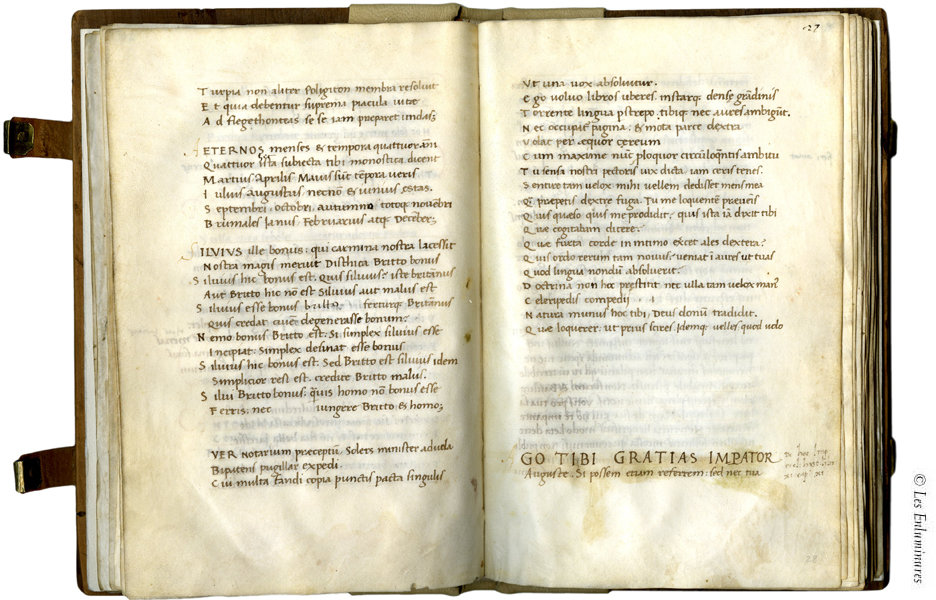 Turpia non aliter Poligiton membra resoluit
Et quia debentur suprema piacula uitae
Ad flegethonteas se se iam preparet undas;
AETERNOS menses & tempora quattuor anni
Quattuor ista subiecta tibi monostica dicent
Martius Aprilis Maius sūt tēpora ueris
Iulius augustus necnō & iunius ęstas.
Septembri octobri autumno totoq; nouēbri
Brumales Ianus Februarius atq; Decēber;
SILVIVS ille bonus: qui carmina nostra lacessit
Nostra magis meruit Disthica Britto bonus
Siluius hic bonus est. Quis siluius? iste britānus
Aut Britto hic nō est Siluius aut malus est
Siluius esse bonus britto ferturq; Britānus
Quis credat ciuē degenerasse bonum?
Nemo bonus Britto est. Si simplex siluius esse
Incipiat. Simplex desinat esse bonus
Siluius hic bonus est. Sed Britto est siluius idem
Simplicior res est. credite Britto malus.
Silui Britto bonus: quis homo nō bonus esse
Ferris: nec iungere Britto & homo;
VER Notarium praeceptū. Solers minister aduola
Bipatens pugillar expedi.
Cui multa fandi copia punctis pacta singulis
27
Vt una uox absoluitur.
Ego voluo libros uberes. instarq; densę grādinis
Torrente lingua pstrepo. tibiq; nec aures ambigūt.
Nec occupat pagina. & mota parce dextra
Volat per ęquor cereum
Cum maxime nūc ploquor circūloq̄ntis ambitu
Tu sensa nostri pectoris uix dicta iam ceris tenes.
Sentire tam uelox mihi uellem dedisset mens mea
Q̄ prepetis dextre fuga. Tu me loquentē preuenis
Quis quaeso quis me prodidit: quis ista iā dixit tibi
Que cogitabam dicere?
Que furta corde in intimo excet ales dextera?
Quis ordo rerum tam nouus? ueniat ī aures ut tuas
Quod lingua nondū absoluerit?
Doctrina non hoc prestitit nec ulla tam uelox man9
Celeripedis compedij
Natura munus hoc tibi. Deus donū tradidit.
Que loquerer. ut prius scires. Idemq; uelles quod uolo
GO TIBI GRATIAS IMPATOR
Auguste. Si possem etiam referrem. sed nec tua
28
© Les Enluminures